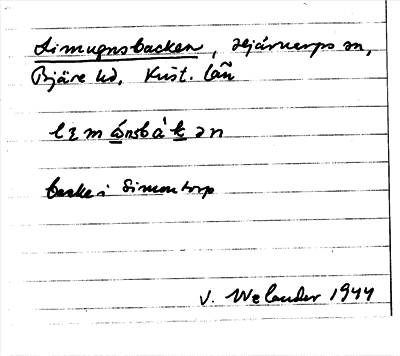 Simugnsbacken, Hjärnarps sn,
Bjäre hd. Krist. län
backe i Simontorp
V. Welander 1944